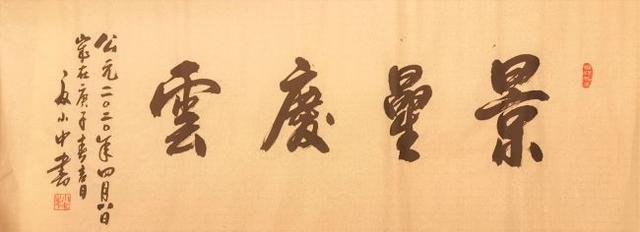 景星慶雲
公元二〇二〇年四月八日
歲在庚子春吉日
小中書